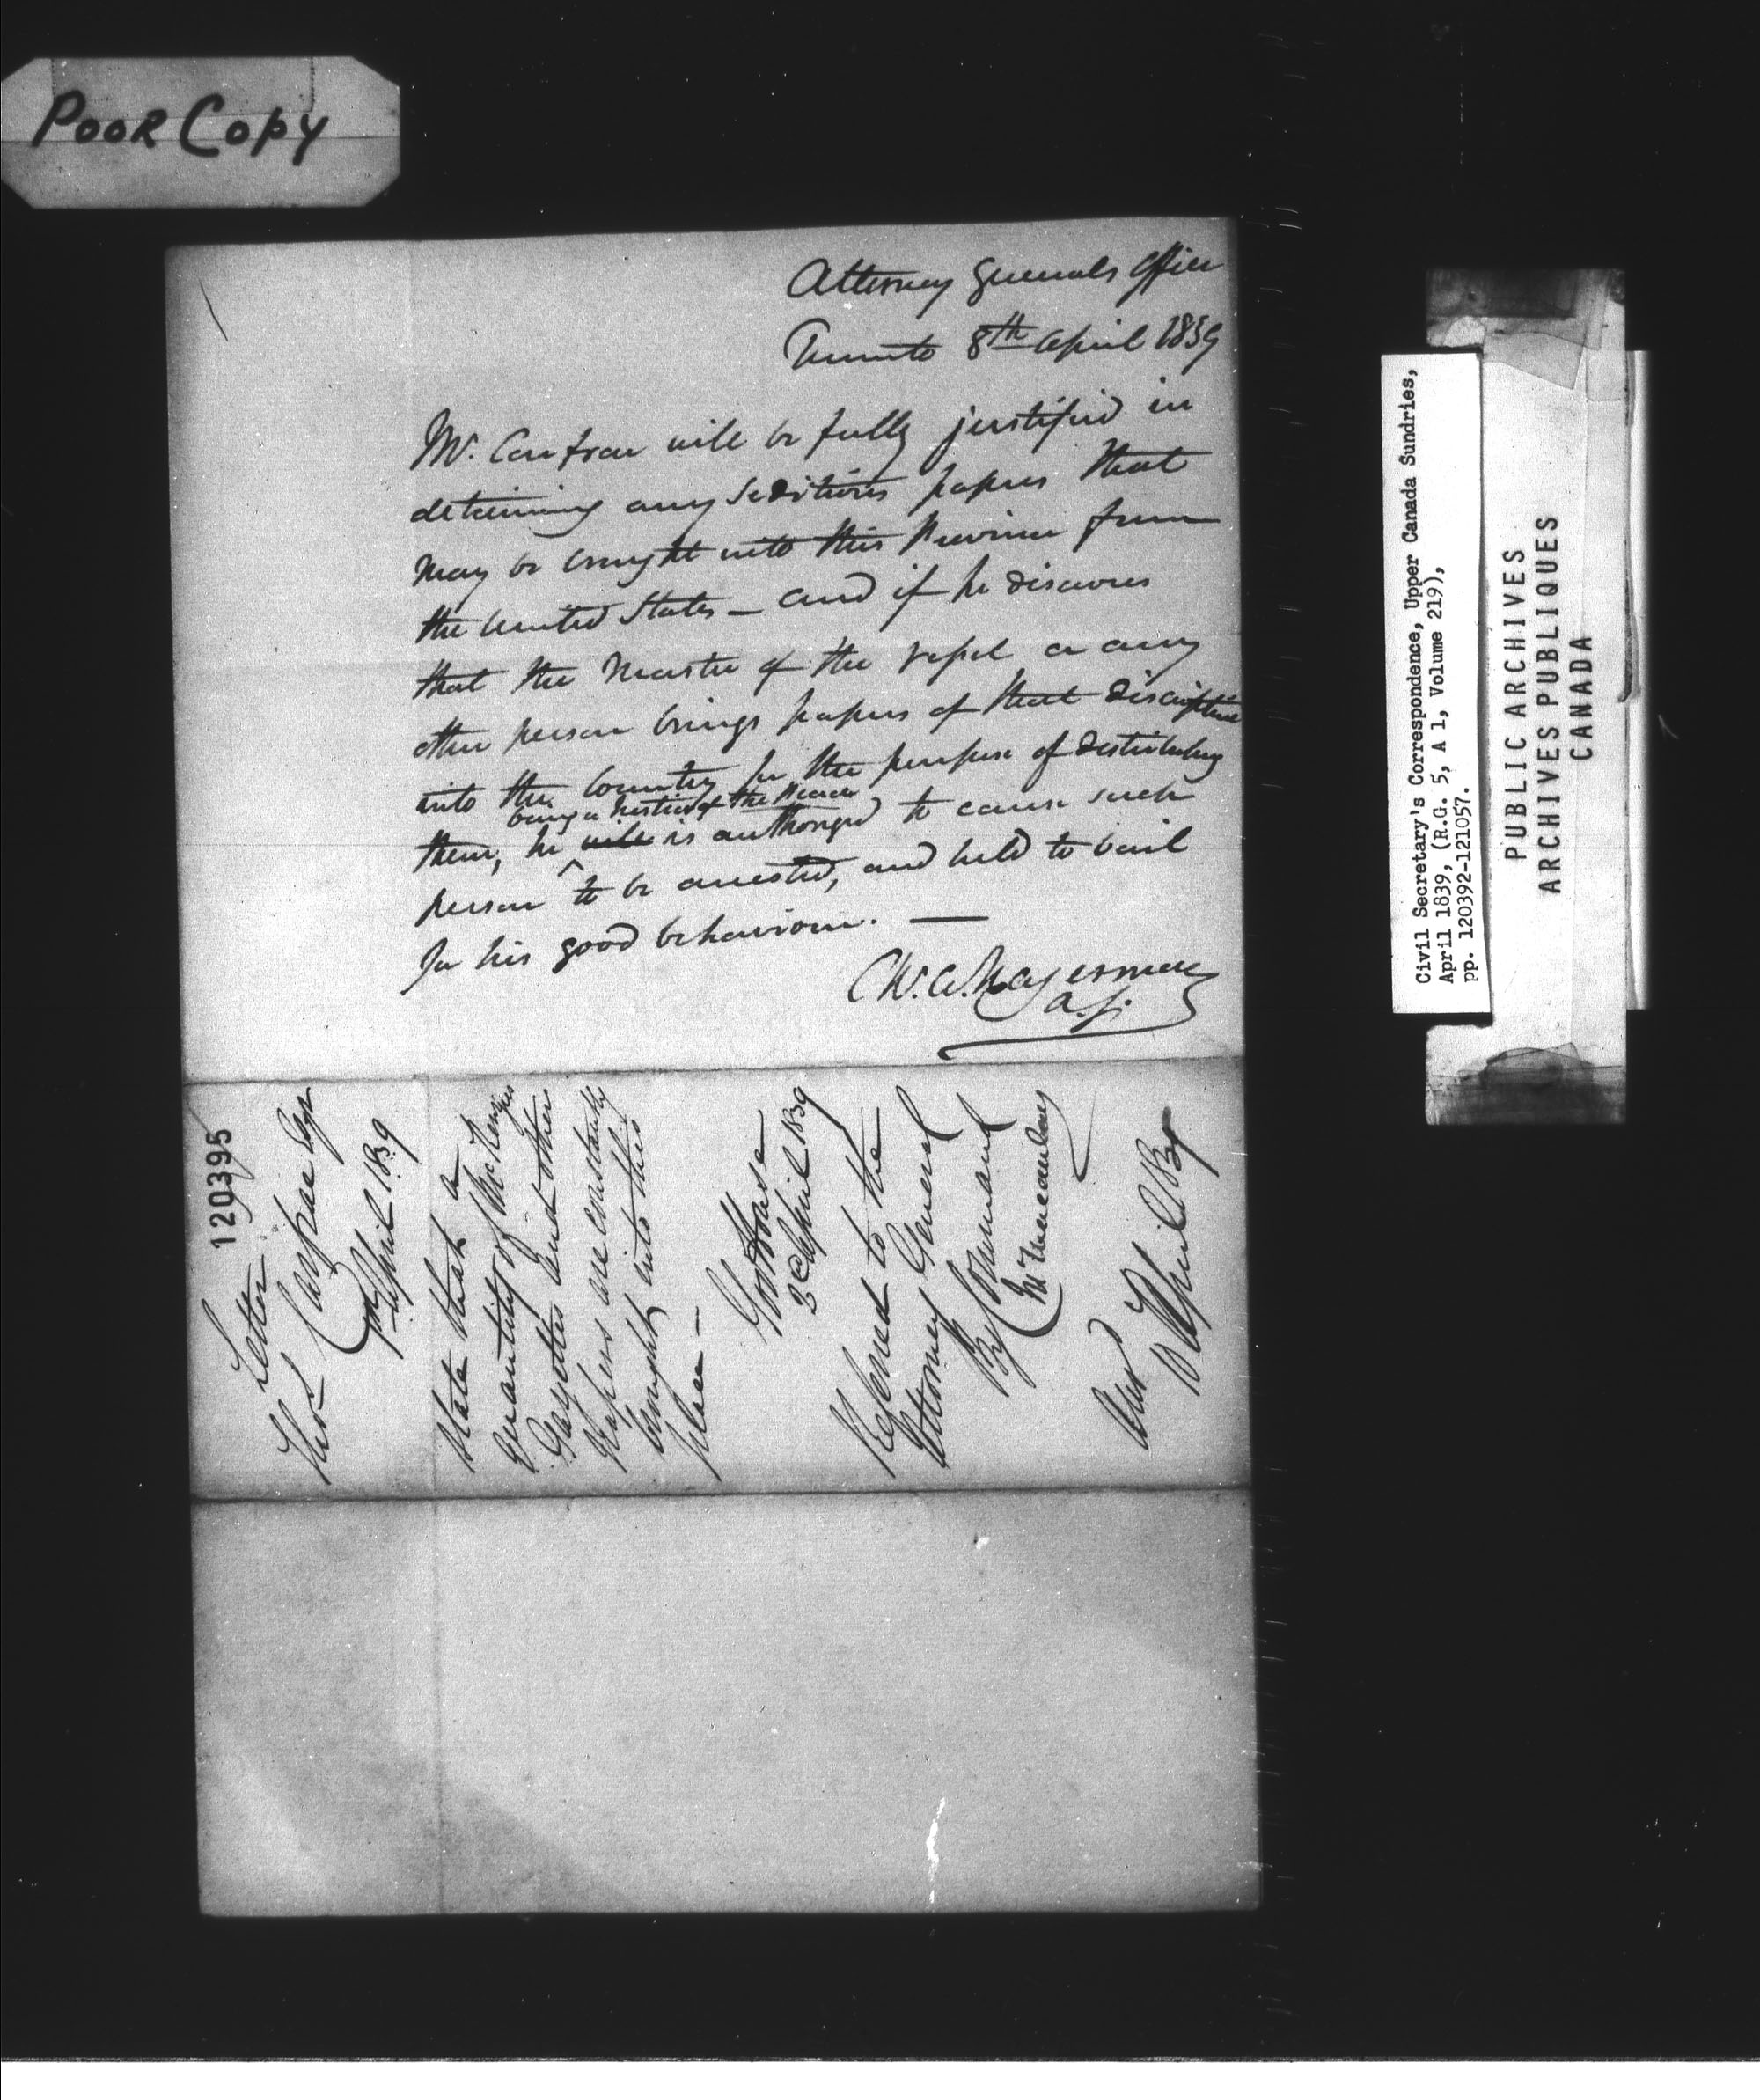 POOR COPY
Attorney Generals Office
Toronto 8th April 1839
Mr. Confrae will be fully justified in
detaining any seditious papers that
may be brought into this Province from
the United States – and if he discovers
that the Master of the vessel or any
other person brings papers of that discription
into the Country for the purpose of distributing
being a Justice of the Peace
them, he will is authorized to cause such
person to be arrested, and held to bail
for his good behaviour. —
C.W.A. Hagerman
A.G.
120395
Letter
Thos Confrae Esqr
April 1839
State that a
quantity of McKenzies
Gazettes and other
papers are constantly
brought into this
place –
Govt House
3d April 1839
Referred to the
Attorney General
By Command
Macaulay
Ansd
10 April 1839
Civil Secretary's Correspondence, Upper Canada Sundries,
April 1839, (R.G. 5, A 1, Volume 219),
pp. 120392-121057.
PUBLIC ARCHIVES
ARCHIVES PUBLIQUES
CANADA